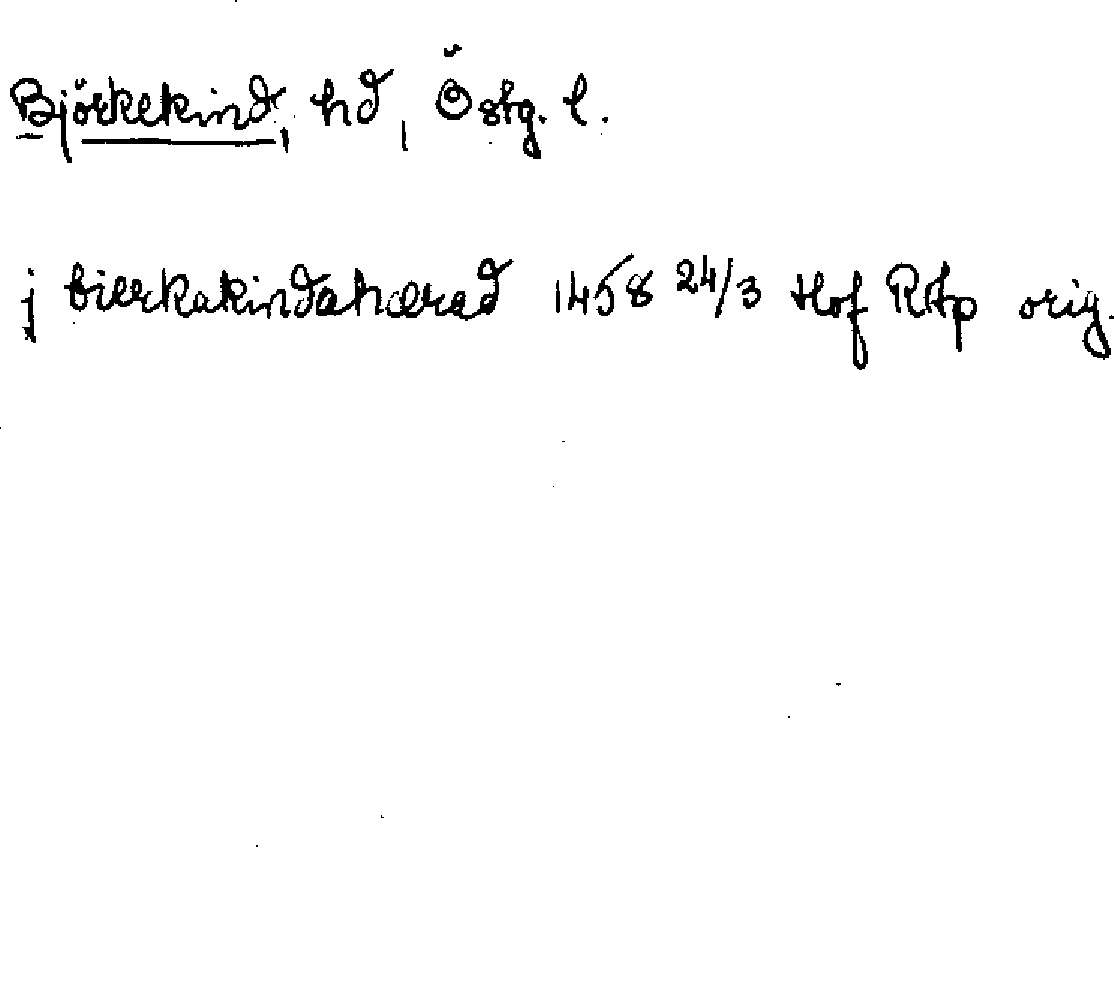 Björkekind, hd, Östg. l.
j bierkakindahærad 1458 24/3 Hof RAp orig.